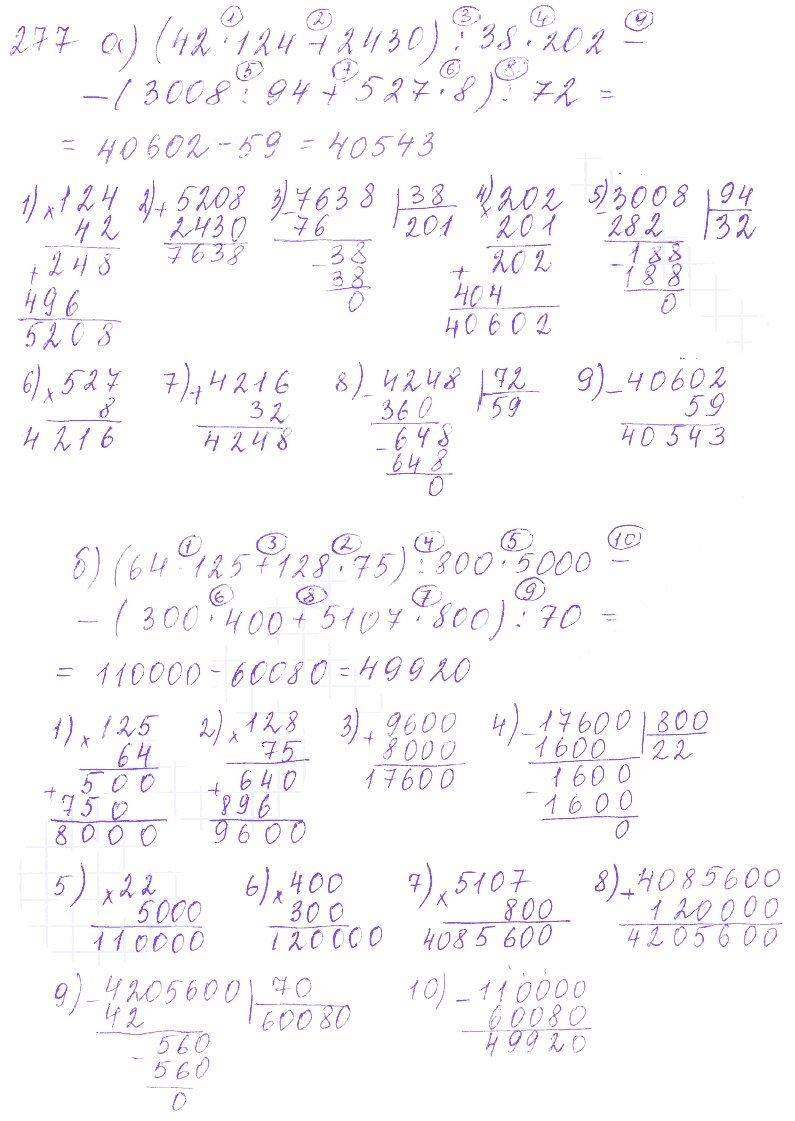 277 а) (42 · 124 + 2430) : 38 · 202 −
① ② ③ ④ ⑨
− (3008 : 94 + 527 · 8) : 72 =
⑤ ⑦ ⑥ ⑧
= 40602 − 59 = 40543
1) × 124 2) + 5208 3) − 7638 | 38 4) × 202 5) − 3008 | 94
42 2430 76 201 201 282 32
+ 248 7638 − 38 + 202 − 188
496 38 404 188
5208 0 40602 0
6) × 527 7) + 4216 8) − 4248 | 72 9) − 40602
8 32 360 59 59
4216 4248 − 648 40543
648
0
б) (64 · 125 + 128 · 75) : 800 · 5000 −
① ③ ② ④ ⑤ ⑩
− (300 · 400 + 5107 · 800) : 70 =
⑥ ⑧ ⑦ ⑨
= 110000 − 60080 = 49920
1) × 125 2) × 128 3) + 9600 4) − 17600 | 800
64 75 8000 1600 22
+ 500 + 640 17600 − 1600
750 896 1600
8000 9600 0
5) × 22 6) × 400 7) × 5107 8) + 4085600
5000 300 800 120000
110000 120000 4085600 4205600
9) − 4205600 | 70 10) − 110000
42 60080 60080
− 560 49920
560
0